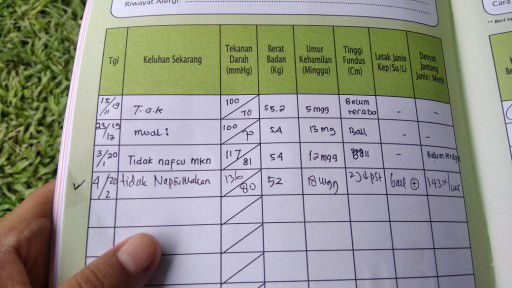 Riwayat Alergi
Cara
Tgl Keluhan Sekarang Tekanan Darah (mmHg) Berat Badan (Kg) Umur Kehamilan (Minggu) Tinggi Fundus (Cm) Letak Janin Kep/Su/Li Denyut Jantung Janin/
15/11/19 T.a.k 100/70 55.2 5 mgg Belum teraba - -
23/19/12 mual 100/70 54 13 mg Ball - -
3/1/20 Tidak nafsu mkn 117/81 54 12 mgg - Belum
4/2/20 tidak Nafsu Makan 136/80 52 18 mgg ball (+) 143x